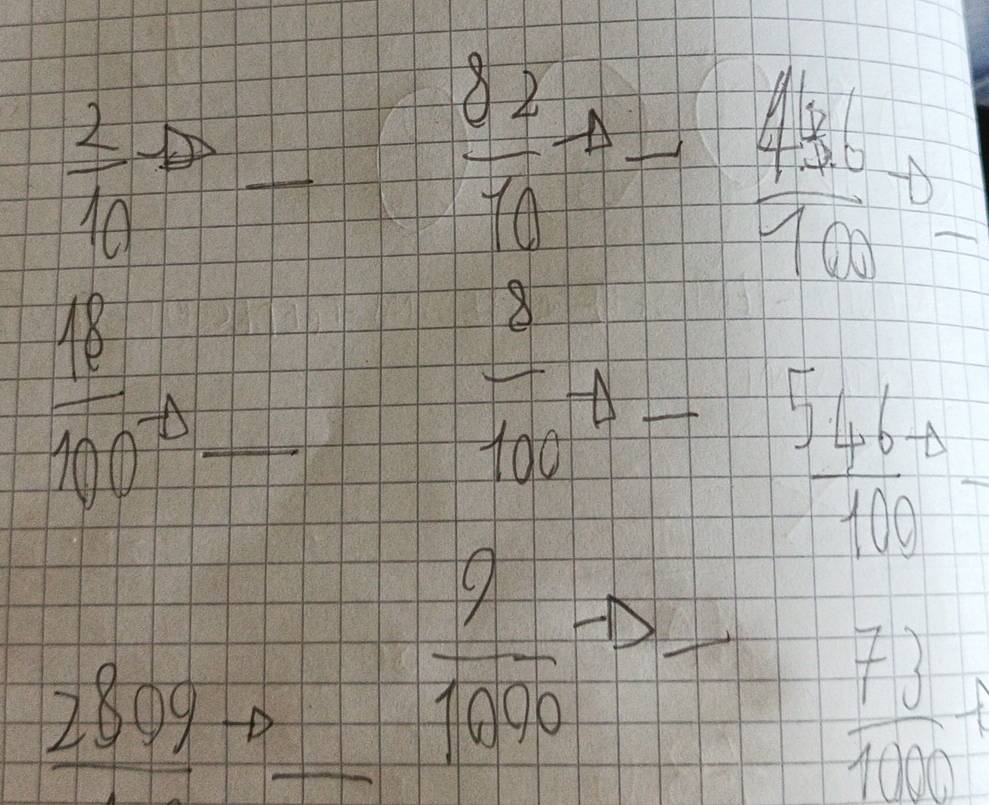 2/10 → _ 82/10 → _ 4 6/100 → _
18/100 → _ 8/100 → _ 546/100 → _
2809 → _ 9/1000 → _ 73/1000 →